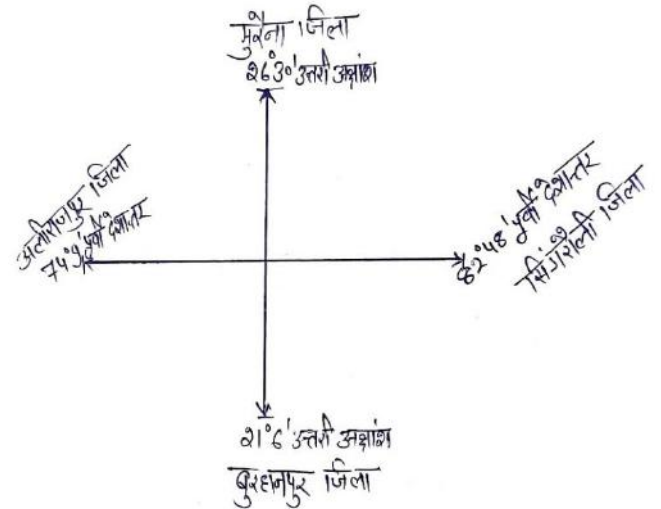 मुरैना जिला
26°30' उत्तरी अक्षांश
अलीराजपुर जिला
74°9' पूर्वी देशान्तर
82°48' पूर्वी देशान्तर
सिंगरौली जिला
21°6' उत्तरी अक्षांश
बुरहानपुर जिला